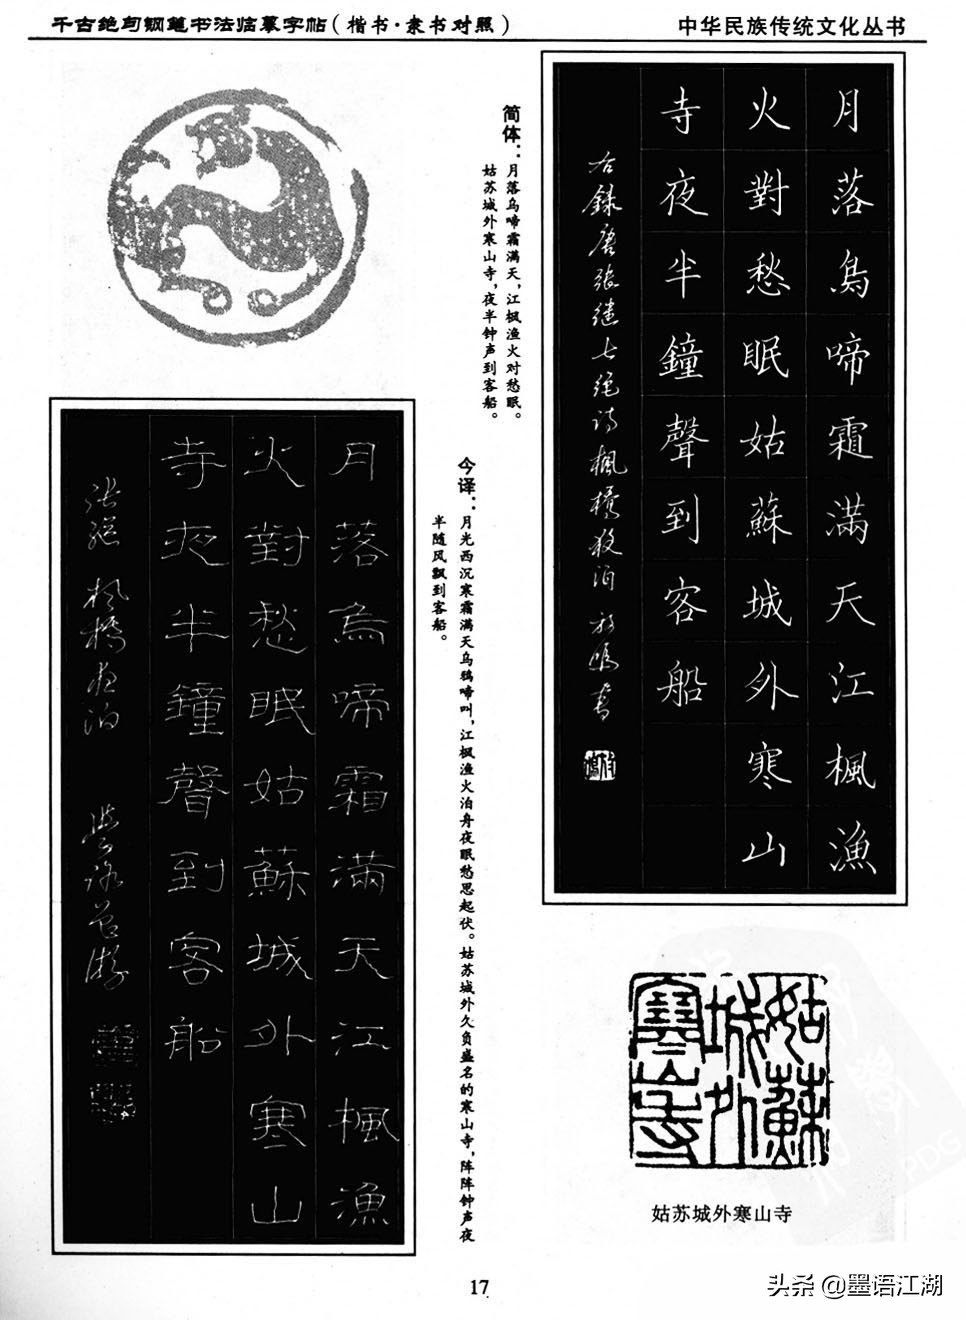 千古绝句钢笔书法临摹字帖(楷书·隶书对照)
中华民族传统文化丛书
月落烏啼霜滿天江楓漁
火對愁眠姑蘇城外寒山
寺夜半鐘聲到客船
右錄唐張繼七絕诗楓橋夜泊
简体：月落乌啼霜满天，江枫渔火对愁眠。
姑苏城外寒山寺，夜半钟声到客船。
今译：月光西沉寒霜满天乌鸦啼叫，江枫渔火泊舟夜眠愁思起伏。姑苏城外久负盛名的寒山寺，阵阵钟声夜
半随风飘到客船。
月落烏啼霜滿天江楓漁
火對愁眠姑蘇城外寒山
寺夜半鐘聲到客船
张继 楓橋夜泊
姑蘇
城外
寒山寺
姑苏城外寒山寺
17
头条 @墨语江湖